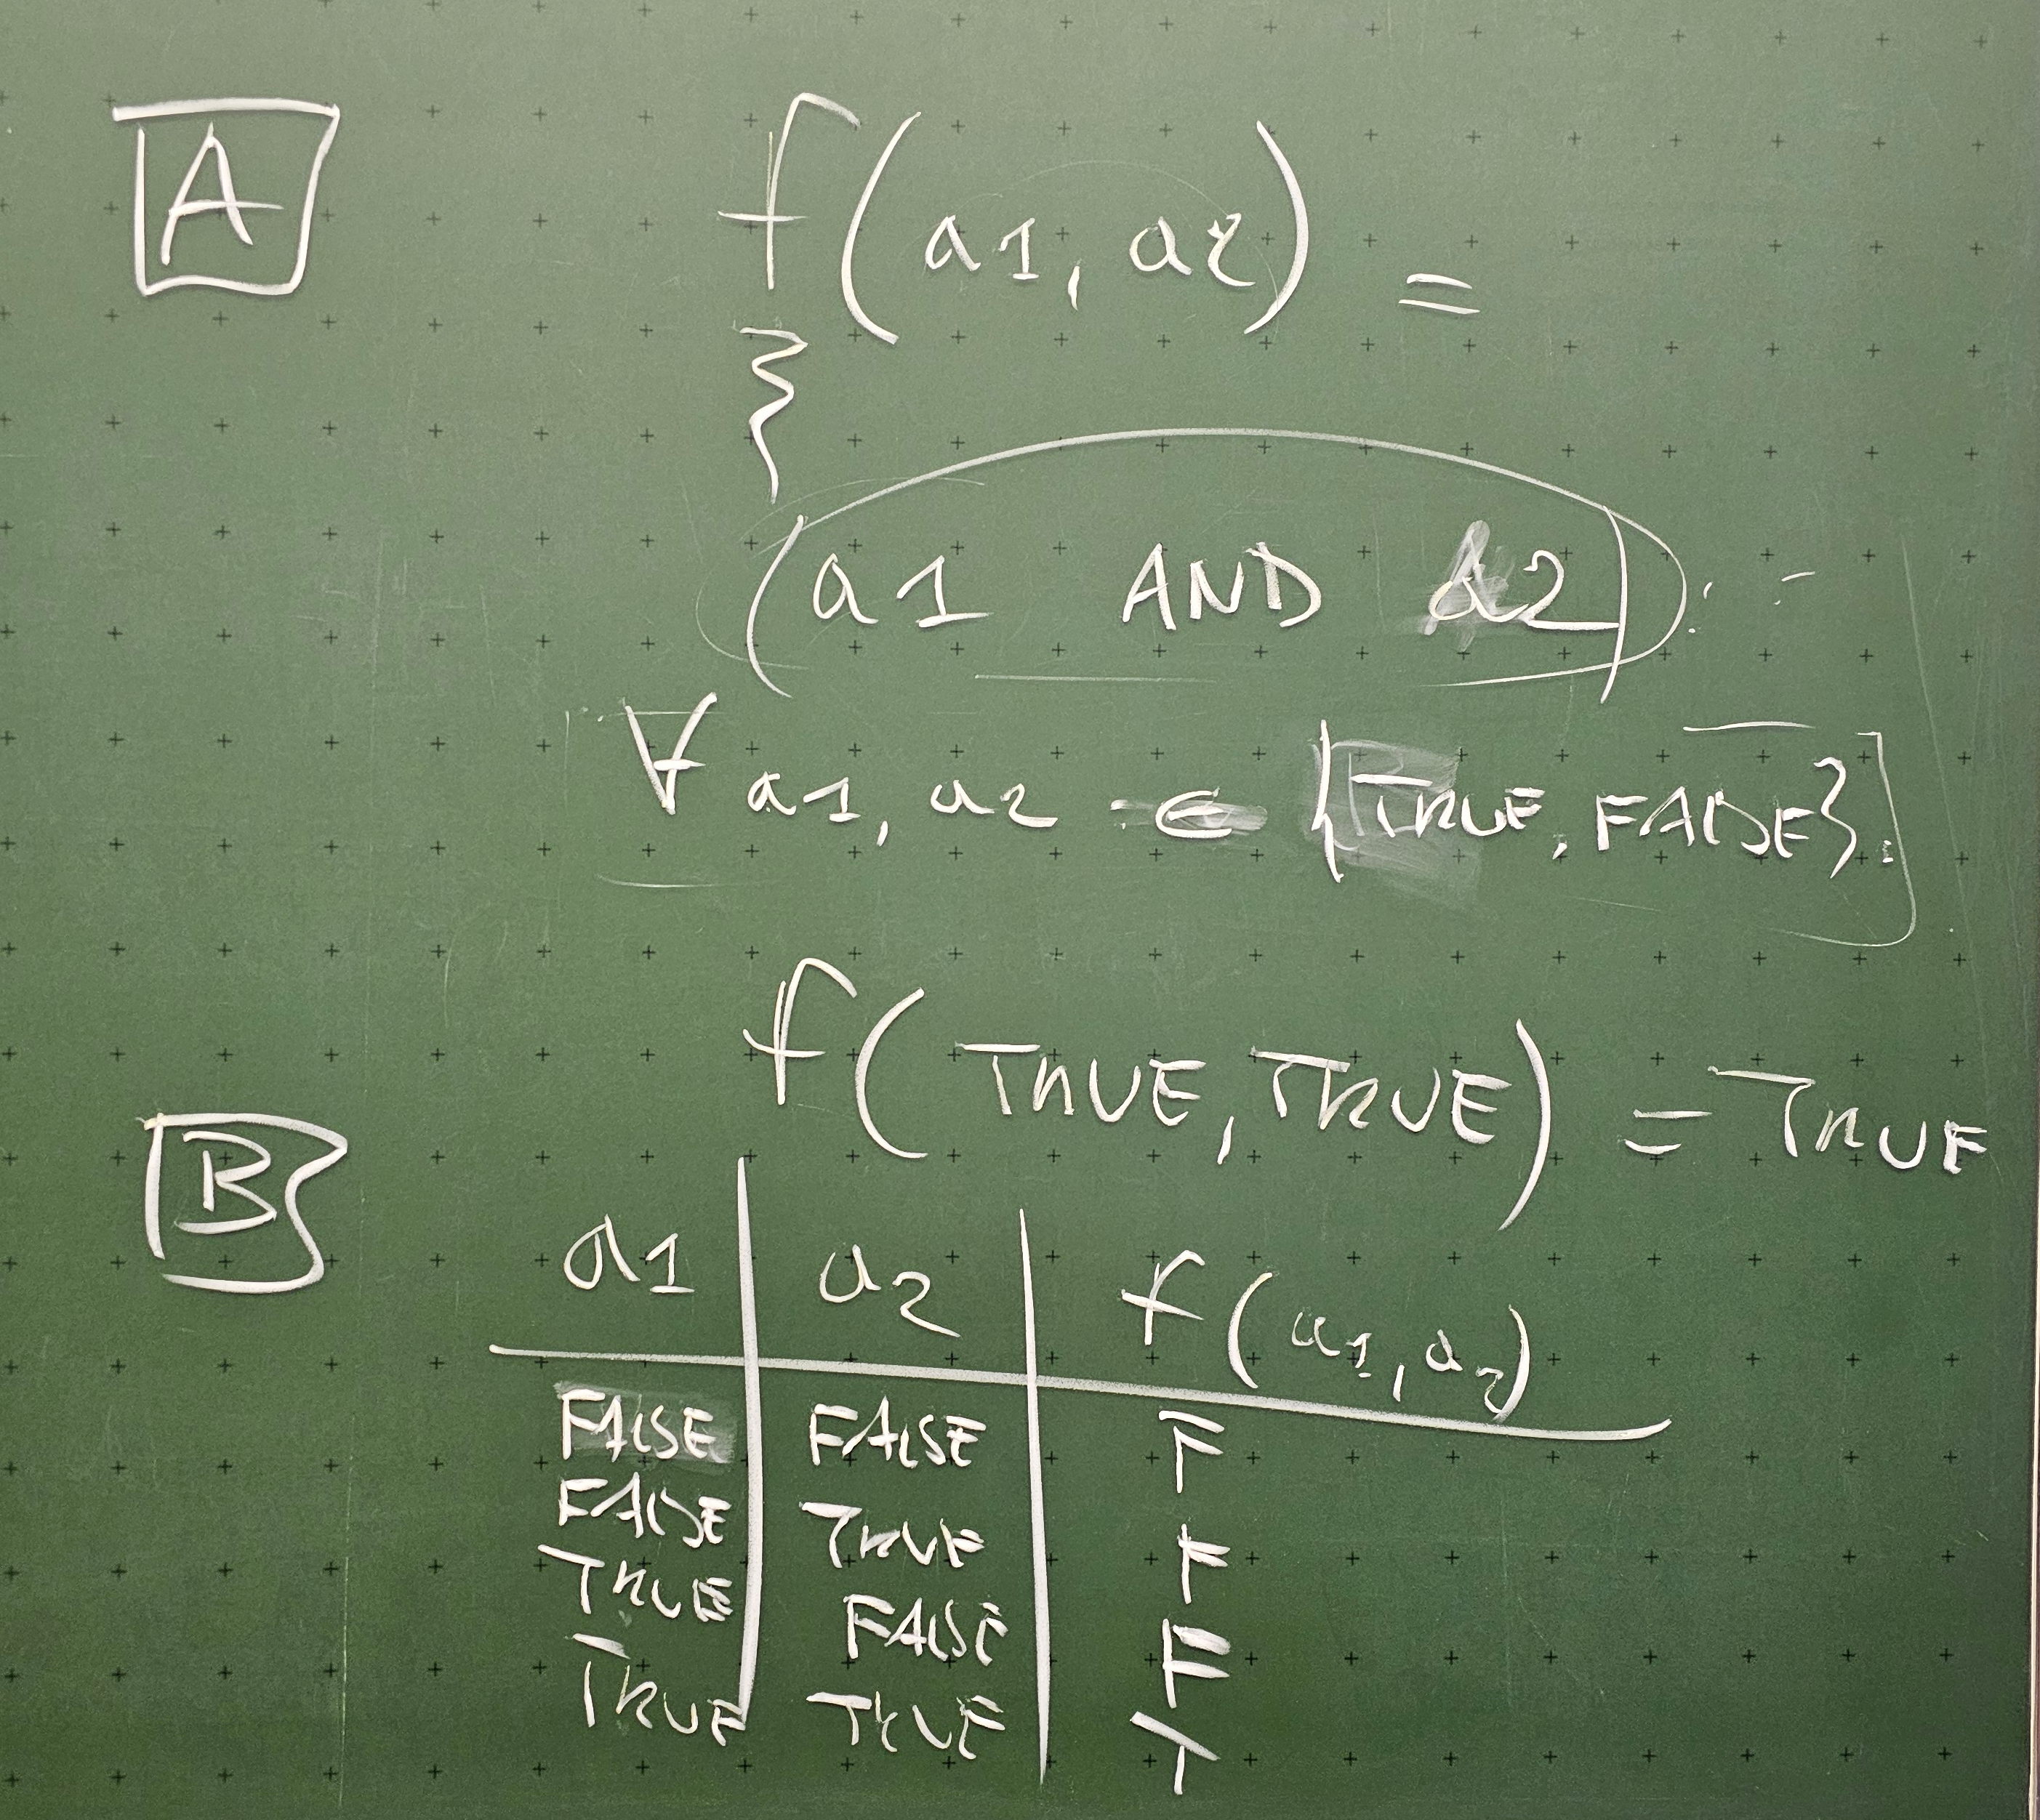 A
f(a1, a2) =
}
(a1 AND a2)
∀ a1, a2 ∈ {TRUE, FALSE}.
f(TRUE, TRUE) = TRUE
B
a1 a2 f(a1, a2)
FALSE FALSE F
FALSE TRUE F
TRUE FALSE F
TRUE TRUE T